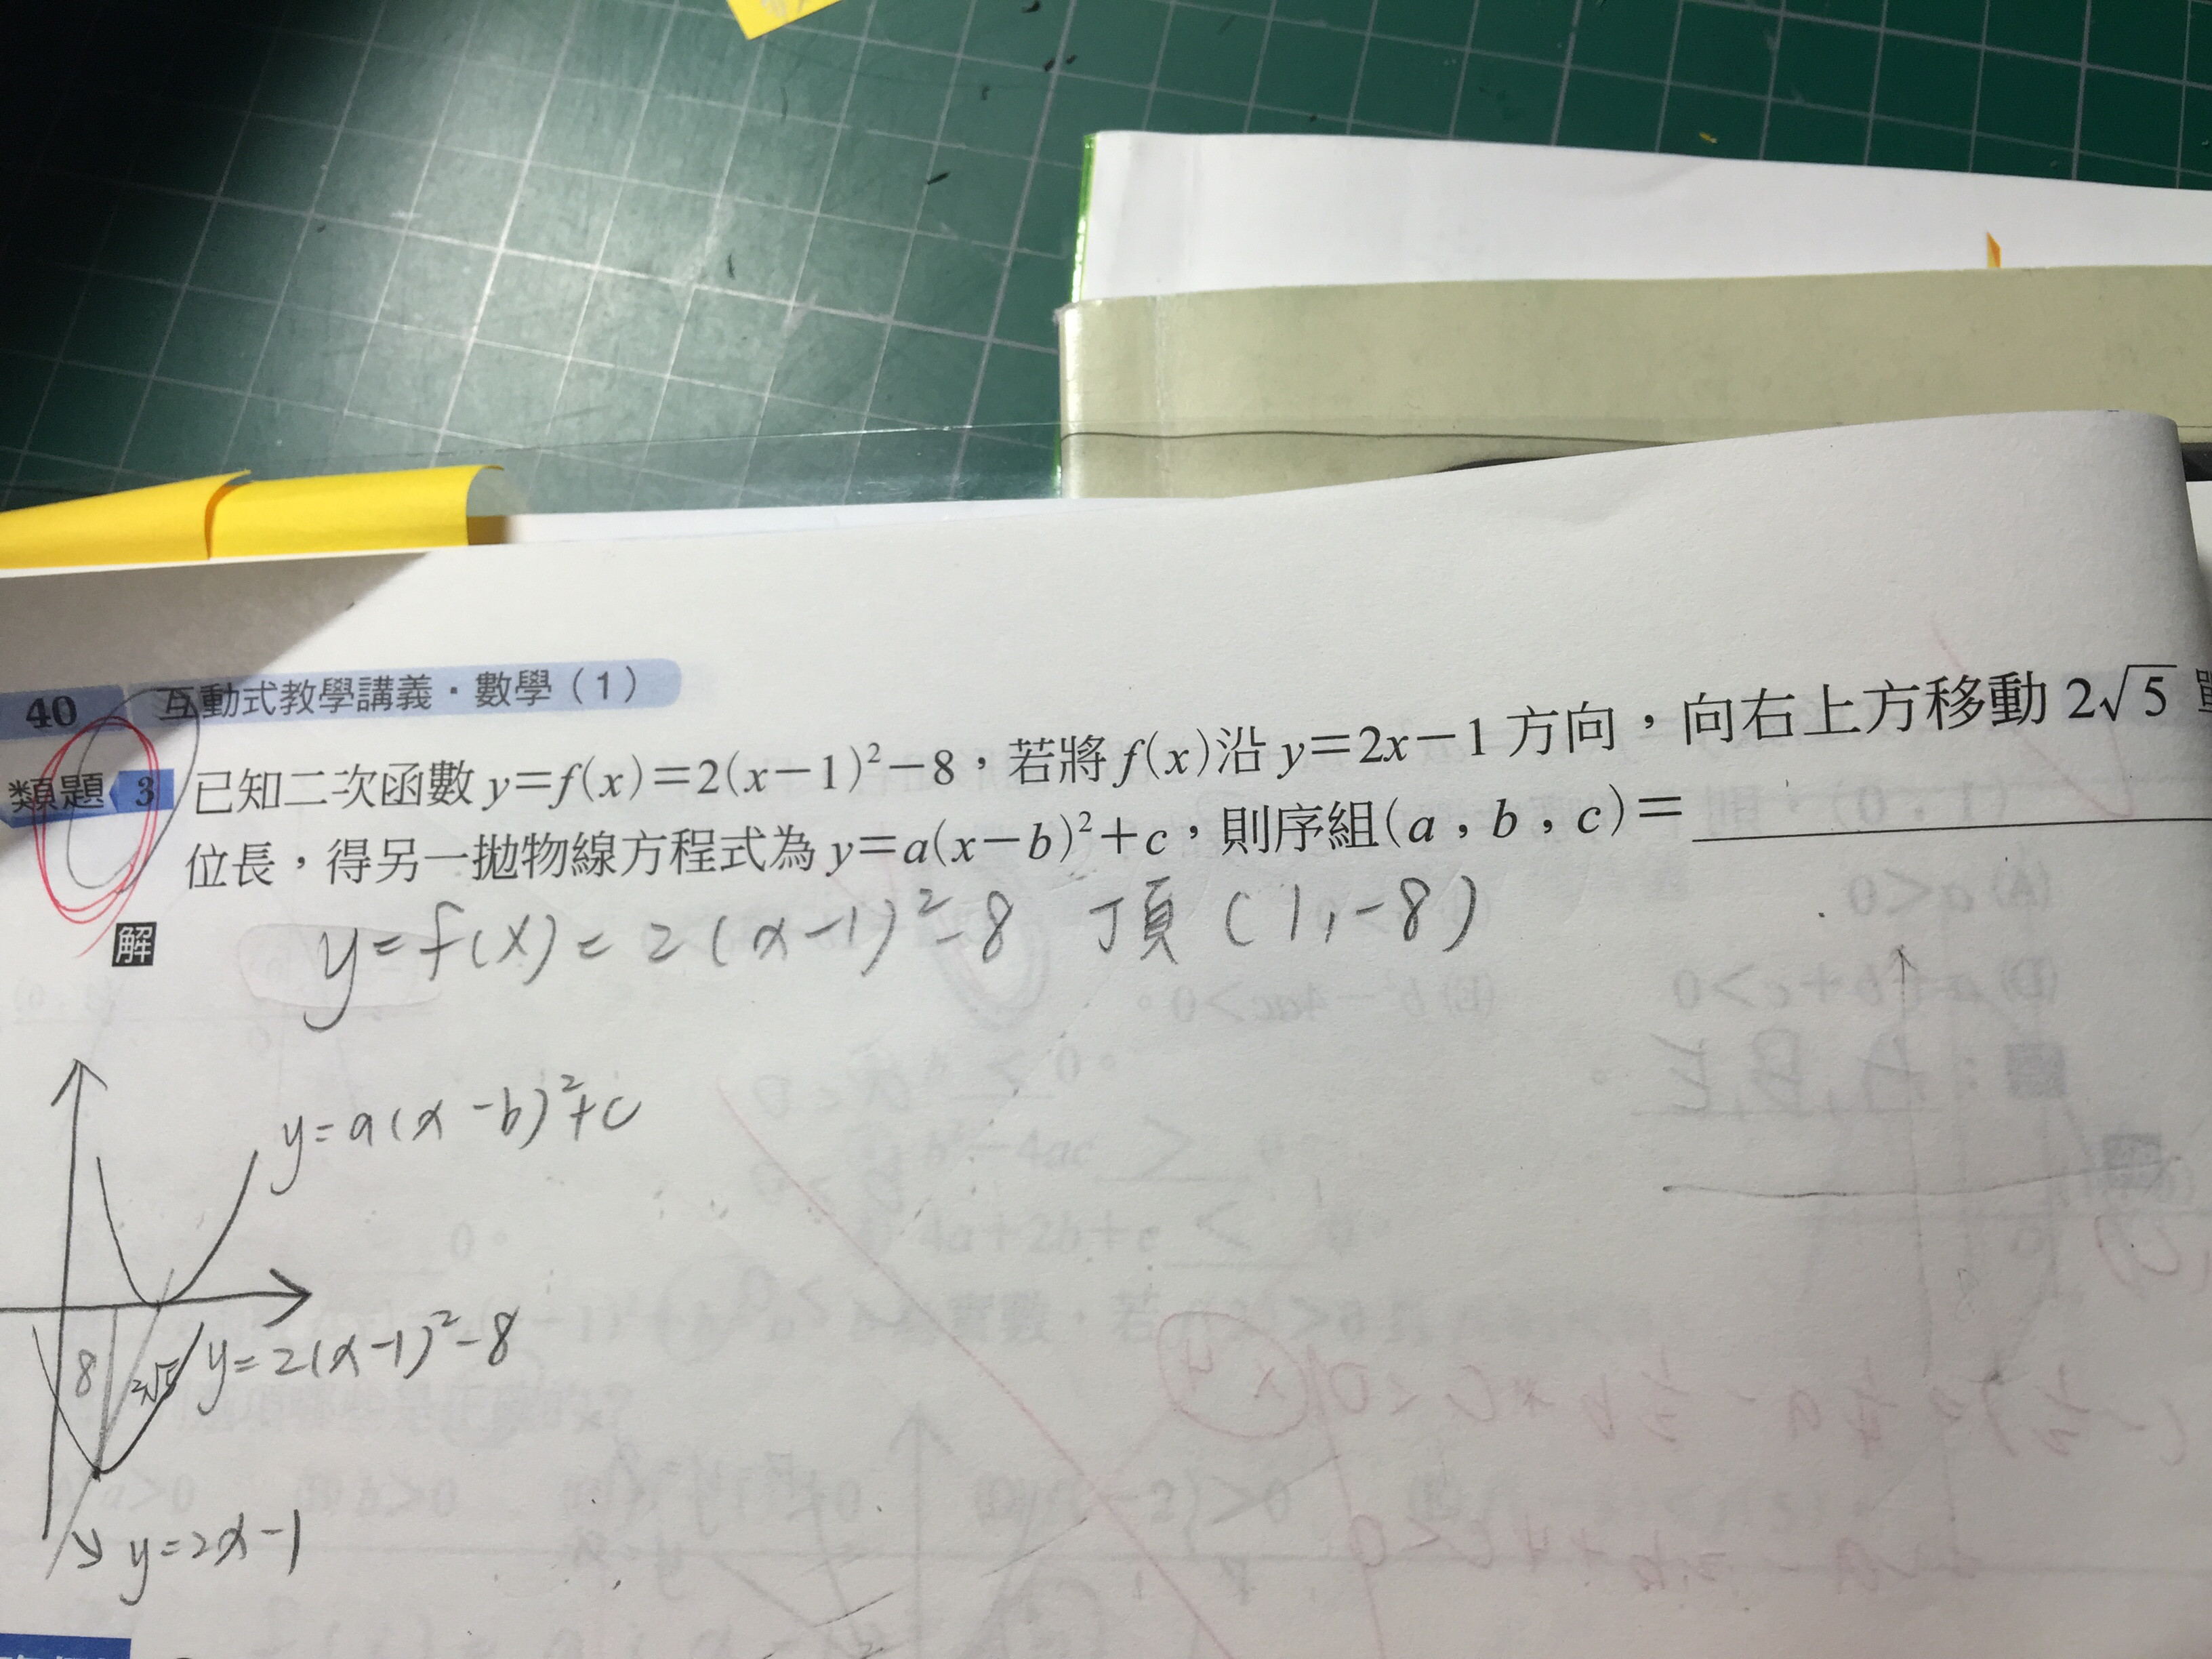 40 互動式教學講義・數學（1）
類題 3 已知二次函數 y=f(x)=2(x−1)²−8，若將 f(x)沿 y=2x−1 方向，向右上方移動 2√5
位長，得另一拋物線方程式為 y=a(x−b)²+c，則序組(a，b，c)=
解
y=f(x)=2(x-1)²-8 頂(1,-8)
y=a(x-b)²+c
8
2√5
y=2(x-1)²-8
y=2x-1